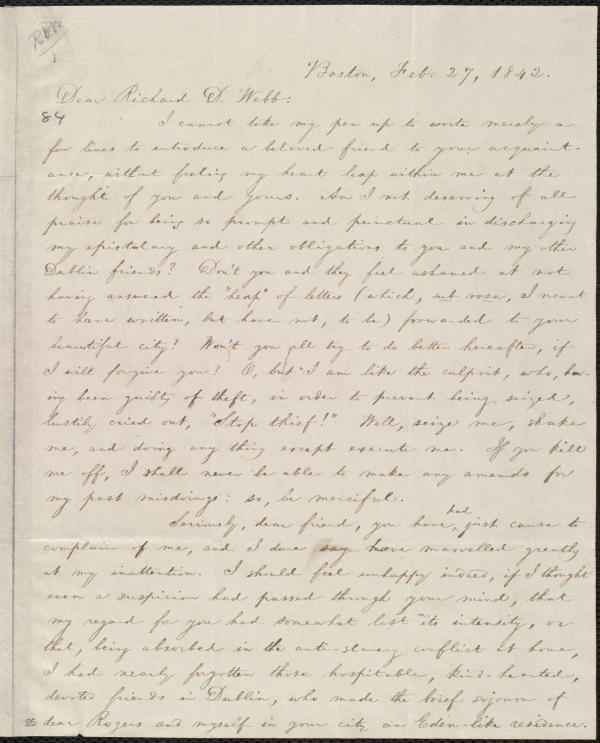 Boston, Feb. 27, 1842.
Dear Richard D. Webb:
84
I cannot take my pen up to write merely a
few lines to introduce a beloved friend to your acquaint-
ance, without feeling my heart leap within me at the
thought of you and yours. Am I not deserving of all
praise for being so prompt and punctual in discharging
my epistolary and other obligations to you and my other
Dublin friends? Don't you and they feel ashamed at not
having answered the "heap" of letters (which, sub rosa, I meant
to have written, but have not, to be) forwarded to your
beautiful city? Won't you all try to do better hereafter, if
I will forgive you? O, but I am like the culprit, who, hav-
ing been guilty of theft, in order to prevent being seized,
lustily cried out, "Stop thief!" Well, seize me, shake
me, and doing any thing except execute me. If you kill
me off, I shall never be able to make any amends for
my past misdoings: so, be merciful.
Seriously, dear friend, you have had just cause to
complain of me, and I dare say have marvelled greatly
at my inattention. I should feel unhappy indeed, if I thought
even a suspicion had passed through your mind, that
my regard for you had somewhat lost its intensity, or
that, being absorbed in the anti-slavery conflict at home,
I had nearly forgotten those hospitable, kind-hearted,
devoted friends in Dublin, who made the brief sojourn of
dear Rogers and myself in your city an Eden-like residence.
85